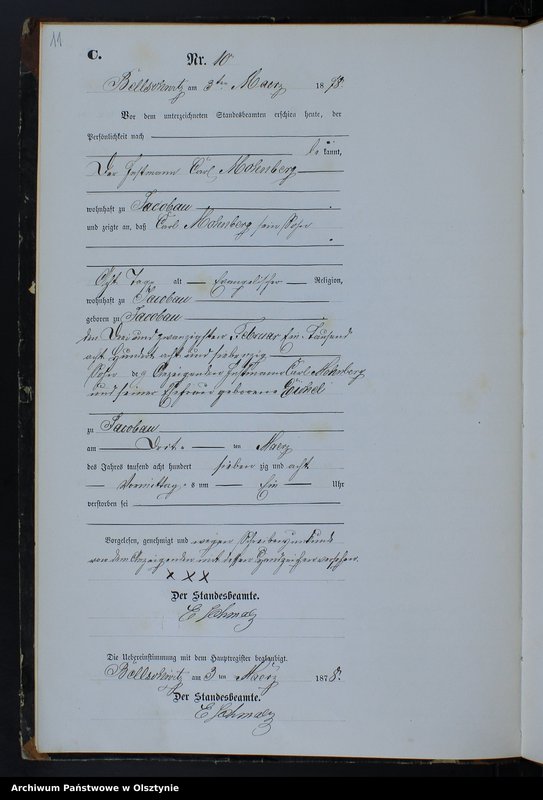 11
C.
Nr. 10
Bellschwitz am 3ten Maerz 1878.
Vor dem unterzeichneten Standesbeamten erschien heute, der
Persönlichkeit nach
bekannt,
Der Instmann Carl Mohnberg
wohnhaft zu Jacobau
und zeigte an, daß Carl Mohnberg sein Sohn
Acht Tage alt Evangelischer Religion,
wohnhaft zu Jacobau
geboren zu Jacobau
den Drei und zwanzigsten Februar Ein Tausend
acht Hundert acht und siebenzig
Sohn des Anzeigenden Instmanns Carl Mohnberg
und seiner Ehefrau geborene
zu Jacobau
am ten Maerz
des Jahres tausend acht hundert sieben zig und acht
Vormittags um Ein Uhr
verstorben sei
Vorgelesen, genehmigt und wegen Schreibensunkunde
von dem Anzeigenden mit dessen Handzeichen versehen.
x x x
Der Standesbeamte.
E Schmalz
Die Uebereinstimmung mit dem Hauptregister beglaubigt.
Bellschwitz am 3 ten Maerz 1878.
Der Standesbeamte.
E Schmalz
Archiwum Państwowe w Olsztynie